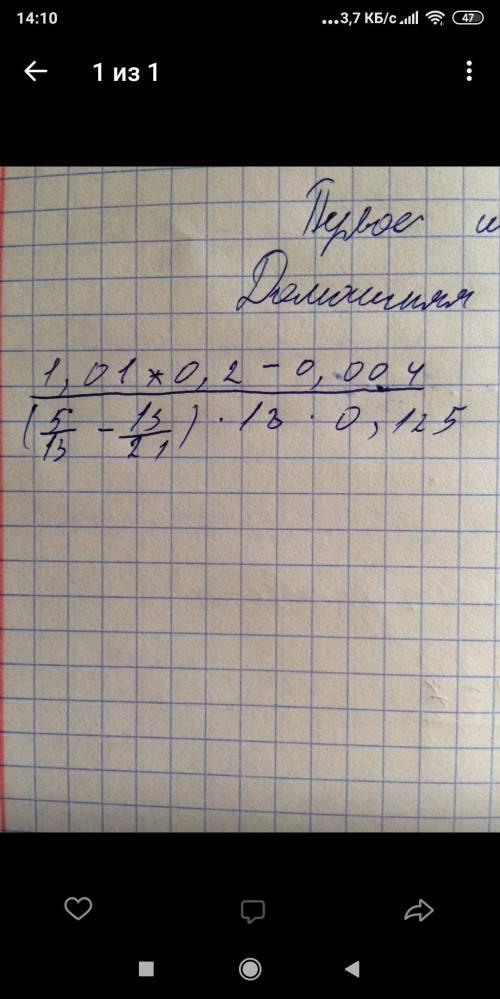 14:10 ...3,7 КБ/с 47
1 из 1
Первое
Домашняя
1,01*0,2-0,004
(5/13 - 13/21) · 13 · 0,125